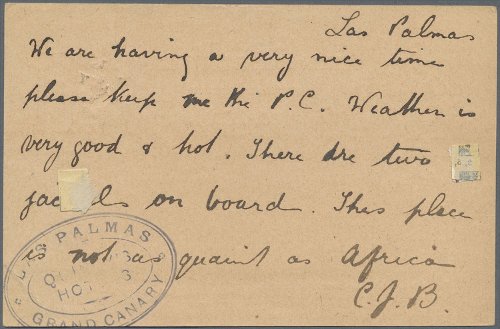 Las Palmas
We are having a very nice time
please keep me the P.C. Weather is
very good & hot. There are two
on board. This place
is not as quaint as Africa
C.J.B.
LAS PALMAS
HOTELS
GRAND CANARY